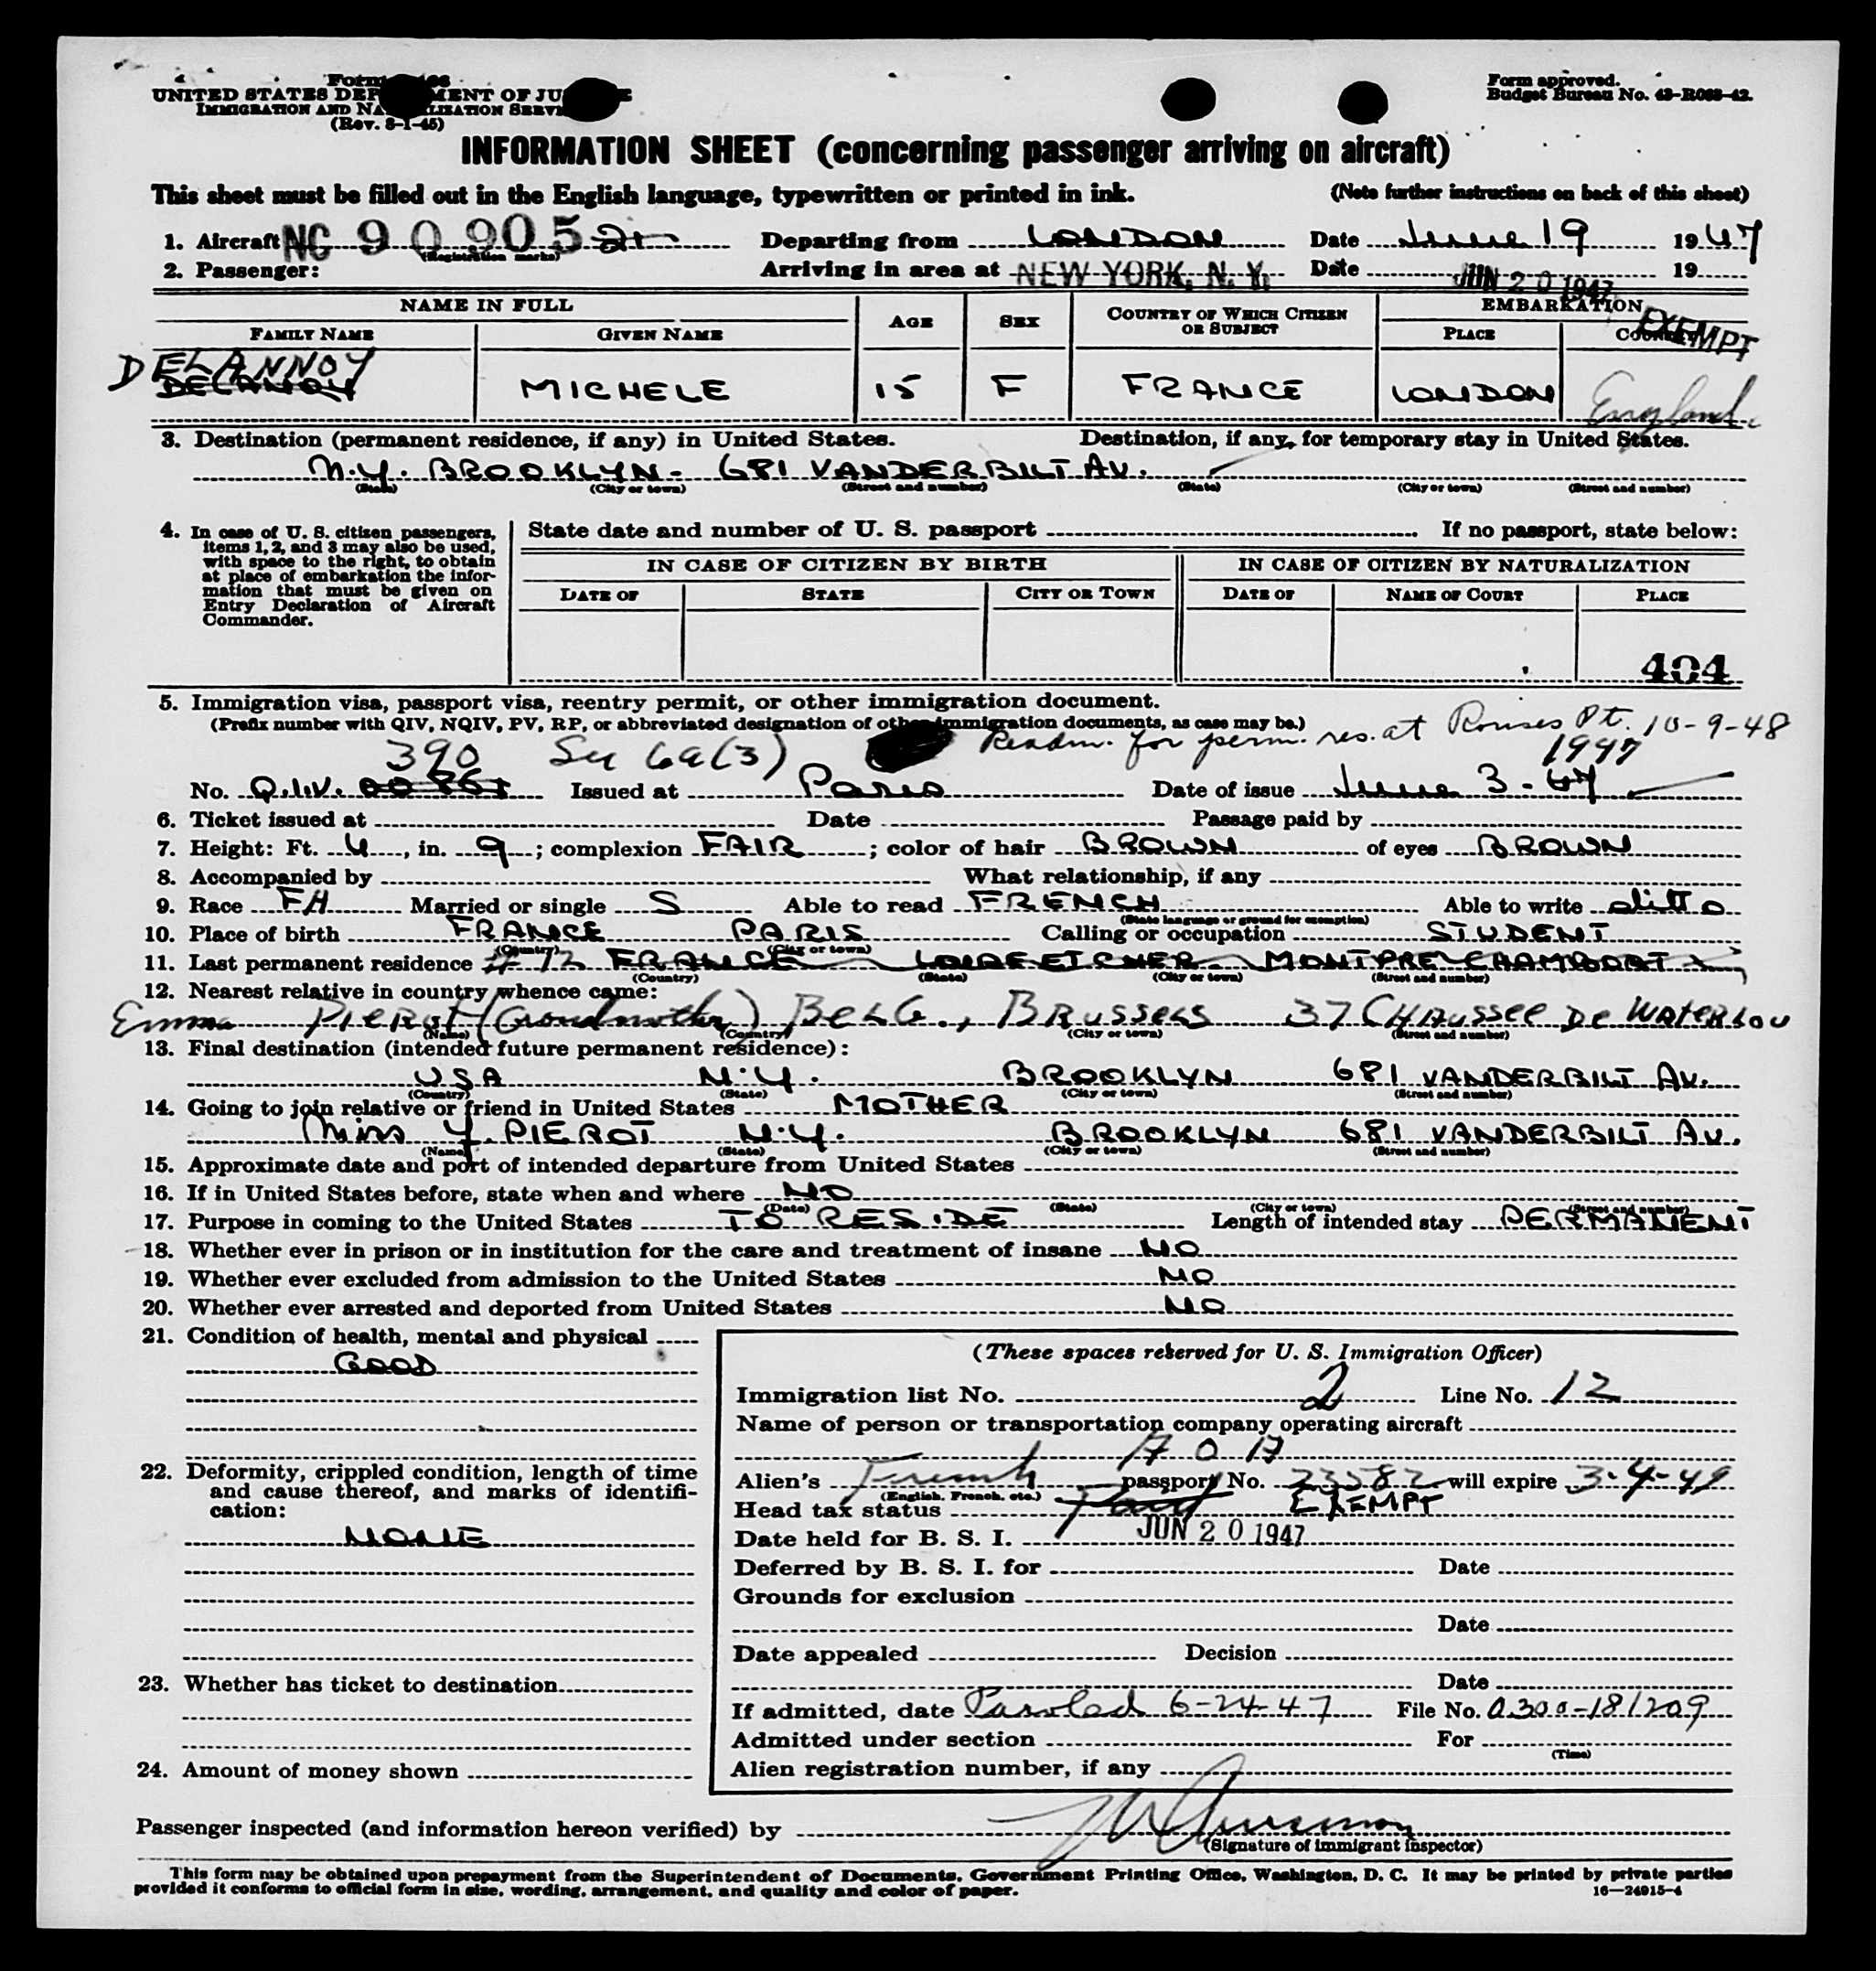 UNITED STATES DEP MENT OF JU E
IMMIGRATION AND NA LIZATION SERVI
(Rev. 8-1-45)
Form approved.
Budget Bureau No. 43-R063-42.
INFORMATION SHEET (concerning passenger arriving on aircraft)
This sheet must be filled out in the English language, typewritten or printed in ink. (Note further instructions on back of this sheet)
1. Aircraft NC 90905 Departing from LONDON Date June 19 1947
(Registration marks)
2. Passenger: Arriving in area at NEW YORK, N. Y. Date JUN 20 1947 19
NAME IN FULL AGE SEX COUNTRY OF WHICH CITIZEN OR SUBJECT EMBARKATION
FAMILY NAME GIVEN NAME PLACE COUNTRY EXEMPT
DELANNOY
DELANOY MICHELE 15 F FRANCE LONDON England
3. Destination (permanent residence, if any) in United States. Destination, if any, for temporary stay in United States.
N.Y. BROOKLYN - 681 VANDERBILT AV.
(State) (City or town) (Street and number) (State) (City or town) (Street and number)
4. In case of U. S. citizen passengers, items 1, 2, and 3 may also be used, with space to the right, to obtain at place of embarkation the information that must be given on Entry Declaration of Aircraft Commander.
State date and number of U. S. passport If no passport, state below:
IN CASE OF CITIZEN BY BIRTH IN CASE OF CITIZEN BY NATURALIZATION
DATE OF STATE CITY OR TOWN DATE OF NAME OF COURT PLACE
404
5. Immigration visa, passport visa, reentry permit, or other immigration document.
(Prefix number with QIV, NQIV, PV, RP, or abbreviated designation of other immigration documents, as case may be.)
Readm. for perm. res. at Rouses Pt. 10-9-48
390 Sec 6a(3) 1947
No. Q.I.V. Issued at Paris Date of issue June 3 - 47
6. Ticket issued at Date Passage paid by
7. Height: Ft. 4, in. 9; complexion FAIR; color of hair BROWN of eyes BROWN
8. Accompanied by What relationship, if any
9. Race FH Married or single S Able to read FRENCH Able to write ditto
(State language or ground for exemption)
10. Place of birth FRANCE PARIS Calling or occupation STUDENT
(Country) (City or town)
11. Last permanent residence FRANCE LOIR ET CHER MONTPRE CHAMBORT
(Country) (State) (City or town) (Street and number)
12. Nearest relative in country whence came:
Emma Pierot (Grandmother) BELG., BRUSSELS 37 CHAUSSEE DE WATERLOU
(Name) (Country) (City or town) (Street and number)
13. Final destination (intended future permanent residence):
USA N.Y. BROOKLYN 681 VANDERBILT AV.
(Country) (State) (City or town) (Street and number)
14. Going to join relative or friend in United States MOTHER
Miss Y. PIEROT N.Y. BROOKLYN 681 VANDERBILT AV.
(Name) (State) (City or town) (Street and number)
15. Approximate date and port of intended departure from United States
16. If in United States before, state when and where NO
(Date) (State) (City or town) (Street and number)
17. Purpose in coming to the United States TO RESIDE Length of intended stay PERMANENT
18. Whether ever in prison or in institution for the care and treatment of insane NO
19. Whether ever excluded from admission to the United States NO
20. Whether ever arrested and deported from United States NO
21. Condition of health, mental and physical
GOOD
22. Deformity, crippled condition, length of time and cause thereof, and marks of identification:
NONE
23. Whether has ticket to destination
24. Amount of money shown
(These spaces reserved for U. S. Immigration Officer)
Immigration list No. 2 Line No. 12
Name of person or transportation company operating aircraft
A O A
Alien's French passport No. 23582 will expire 3-4-49
(English, French, etc.)
Head tax status Paid EXEMPT
Date held for B. S. I. JUN 20 1947
Deferred by B. S. I. for Date
Grounds for exclusion
Date
Date appealed Decision
Date
If admitted, date Paroled 6-24-47 File No. 0300-181209
Admitted under section For
(Time)
Alien registration number, if any
Passenger inspected (and information hereon verified) by
(Signature of immigrant inspector)
This form may be obtained upon prepayment from the Superintendent of Documents, Government Printing Office, Washington, D. C. It may be printed by private parties
provided it conforms to official form in size, wording, arrangement, and quality and color of paper. 16—24915-4